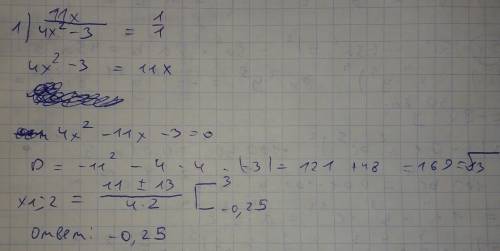 1) 11x / 4x² - 3 = 1/1
4x² - 3 = 11x
4x² - 11x - 3 = 0
D = -11² - 4 · 4 · (-3) = 121 + 48 = 169 = √13
x1;2 = 11 ± 13 / 4·2 [ 3
-0,25
ответ: -0,25